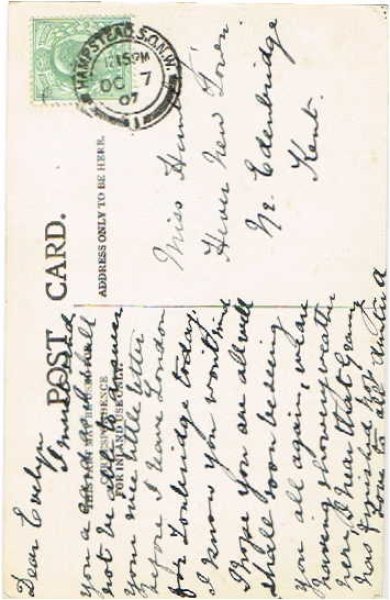 HAMPSTEAD.S.O.N.W.
12.15PM
OC 7
07
POST CARD.
ADDRESS ONLY TO BE HERE.
FOR INLAND USE ONLY.
Miss Hunt
Hever New Town.
Nr Edenbridge
Kent.
Dear Evelyn
I must send
you a card as I shall
not be able to answer
your nice little letter
before I leave London
for Tonbridge today.
I know you won't mind
I hope you are all well
shall soon be seeing
you all again, we are
having showery weather
here, I hear that Geames
has finished